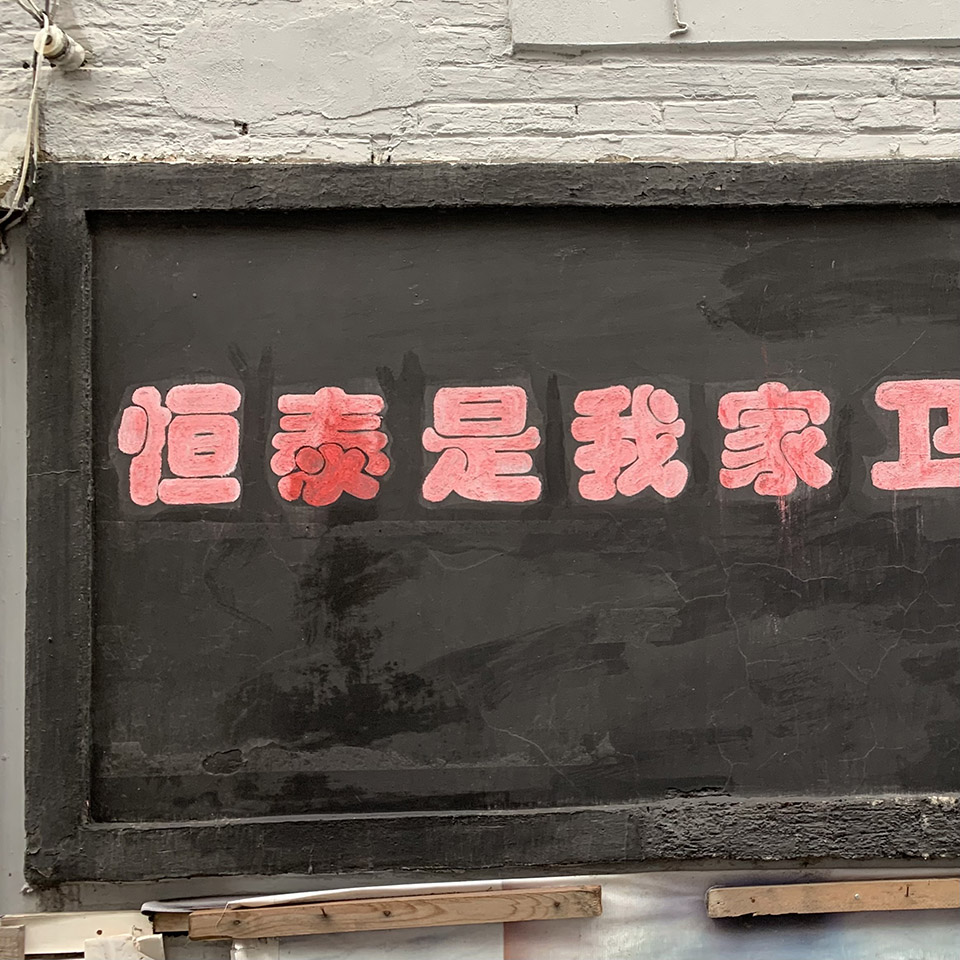 恒泰是我家卫